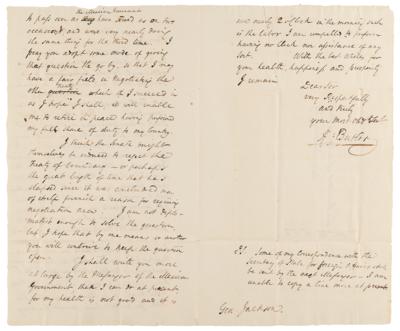 the Mexican Government
to pass over as they have stood on two
occasions and were very nearly doing
the same thing for the third time. I
pray you adopt some mode of giving
that question the go by, so that I may
have a fair field in negotiating the
other question Treaty which if I succeed in
as I hope I shall, it will enable
me to retire in peace having performed
my full share of duty to my country.
I think the Senate might
themselves be induced to reject the
Treaty of boundary - or perhaps
the great length of time that has
elapsed since it was concluded may
of itself furnish a reason for requiring
negotiation anew. I am not diplo-
matist enough to solve the question
but I hope that by one means or another
you will contrive to keep the question
open. I shall write you more
at large by the Messenger of the Mexican
Government than I can do at present
for my health is not good and it is
now nearly 2 o'clock in the morning such
is the labor I am compelled to perform
having no clerk nor assistance of any
sort. With the best wishes for
your health, happiness and prosperity
I remain
Dear Sir
very Respectfully
and truly
your Most Obt Servt
A. Butler
P.S. Some of my correspondence with the
Secretary of State for foreign Affairs will
be sent by the next Messenger - I am
unable to copy a line more at present
Gen. Jackson.